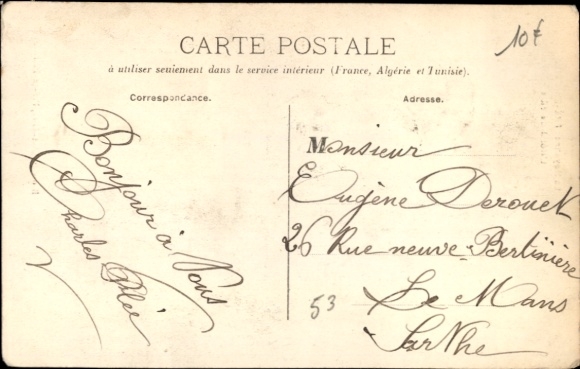 10f
CARTE POSTALE
à utiliser seulement dans le service intérieur (France, Algérie et Tunisie).
Correspondance.
Adresse.
Bonjour à Vous
Charles Plé
Monsieur
Eugène Derouet
26 Rue neuve Bertinière
Le Mans
Sarthe
53